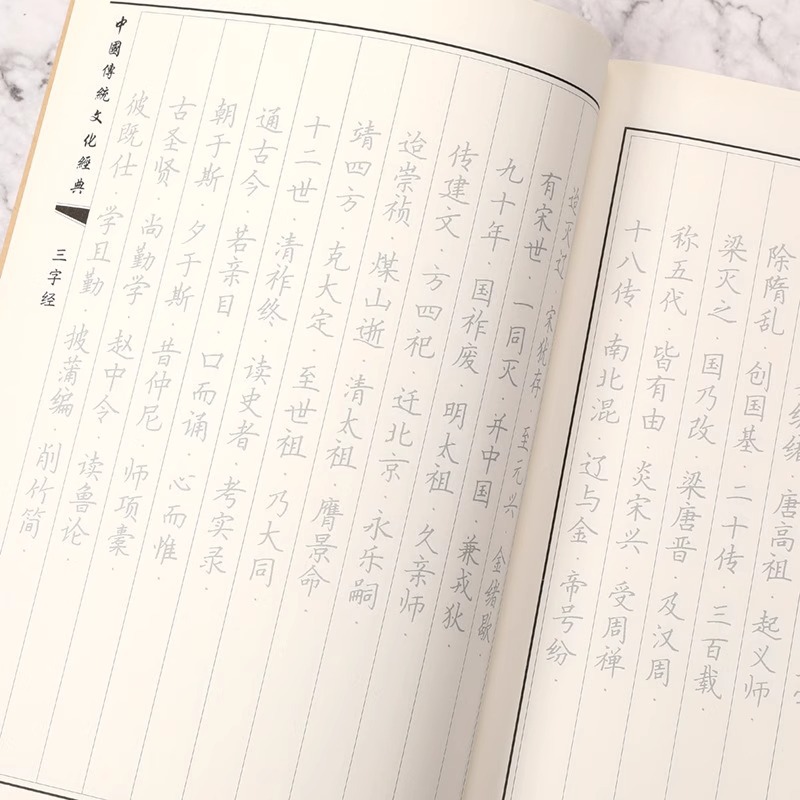 绪·唐高祖·起义师·
除隋乱·创国基·二十传·三百载·
梁灭之·国乃改·梁唐晋·及汉周·
称五代·皆有由·炎宋兴·受周禅·
十八传·南北混·辽与金·帝号纷·
迨灭辽·宋犹存·至元兴·金绪歇·
有宋世·一同灭·并中国·兼戎狄·
九十年·国祚废·明太祖·久亲师·
传建文·方四祀·迁北京·永乐嗣·
迨崇祯·煤山逝·清太祖·膺景命·
靖四方·克大定·至世祖·乃大同·
十二世·清祚终·读史者·考实录·
通古今·若亲目·口而诵·心而惟·
朝于斯·夕于斯·昔仲尼·师项橐·
古圣贤·尚勤学·赵中令·读鲁论·
彼既仕·学且勤·披蒲编·削竹简·
中國傳統文化經典
三字经